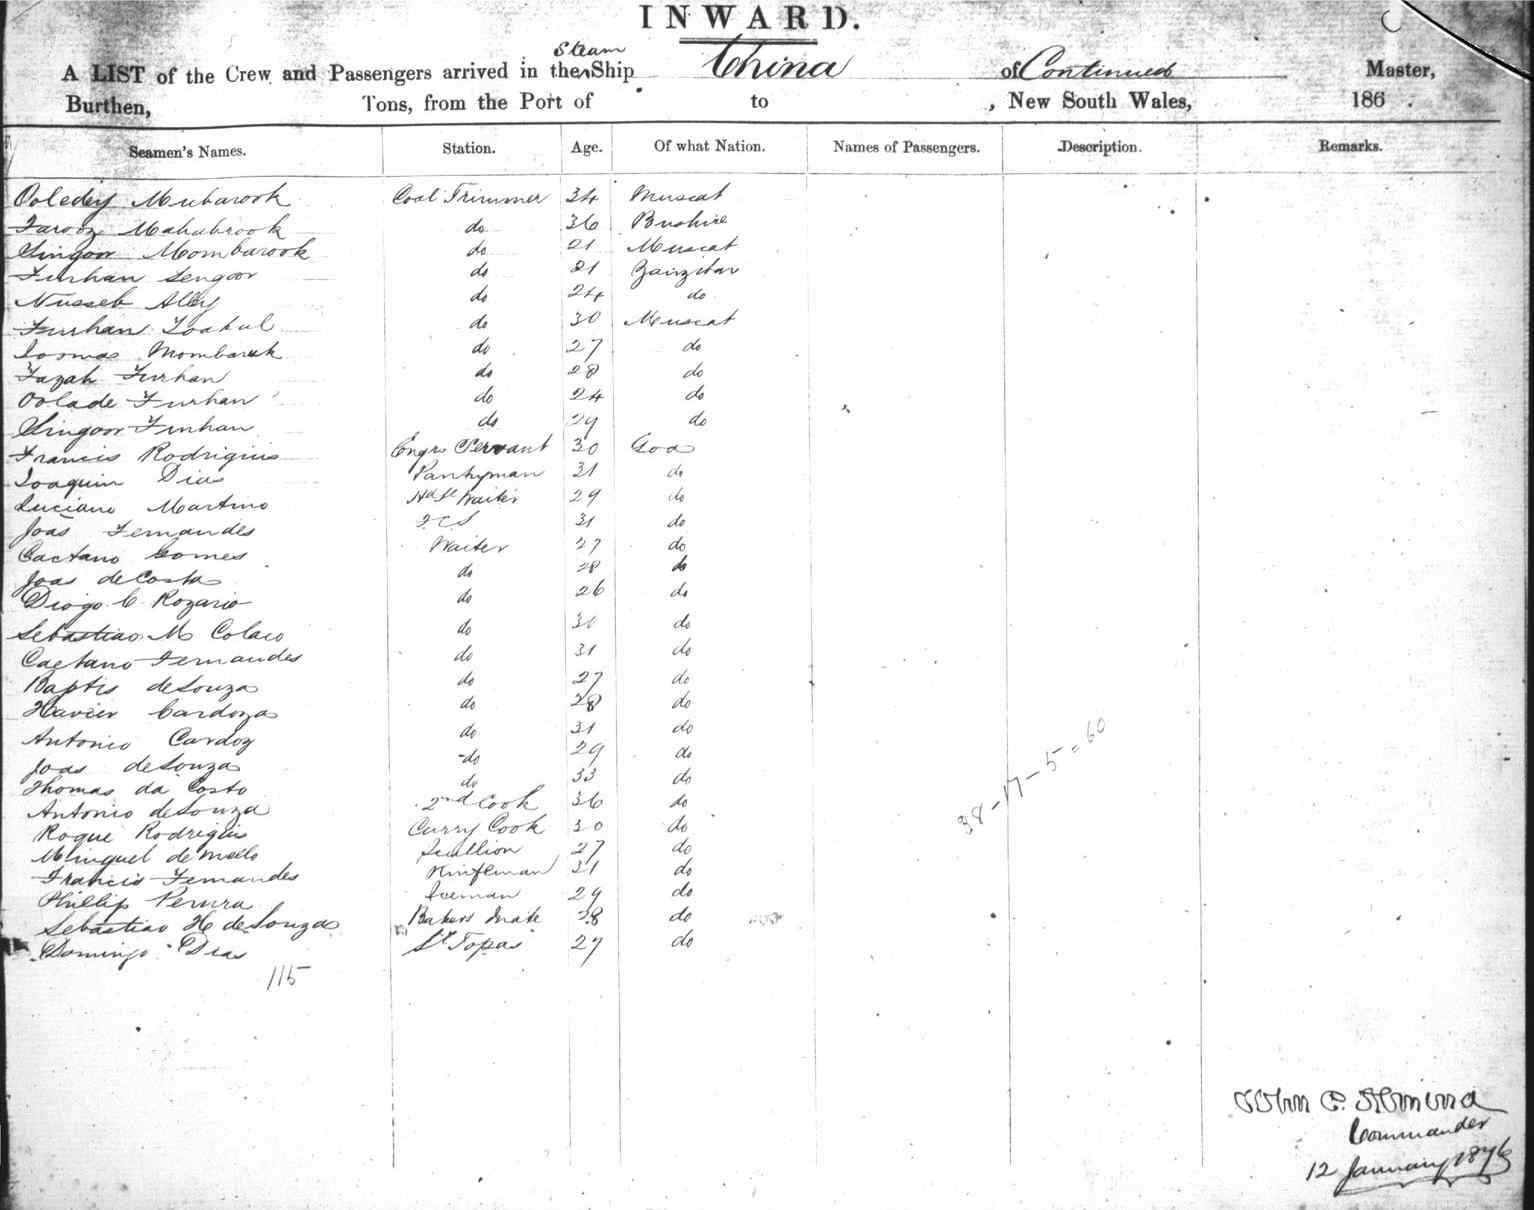 INWARD.
A LIST of the Crew and Passengers arrived in the Steam Ship China of Continued Master,
Burthen, Tons, from the Port of to , New South Wales, 186 .
Seamen's Names. Station. Age. Of what Nation. Names of Passengers. Description. Remarks.
Ooledey Mubarook Coal Trimmer 34 Muscat
Farooz Mahabrook do 36 Bushire
Singoor Mombarook do 21 Muscat
Furhan Sengoor do 21 Zainzibar
Nusseb Alley do 24 do
Furhan Toakul do 30 Muscat
Joomas Mombaruk do 27 do
Fazah Furhan do 28 do
Oolade Furhan do 24 do
Singoor Furhan do 29 do
Francis Rodrigues Engrs Servant 30 Goa
Joaquim Dias Pantryman 31 do
Luciano Martino Waiter 29 do
Joas Fernandes 31 do
Caetano Gomes Waiter 27 do
Joas de Costa do 28 do
Diogo C. Rozario do 26 do
Sebastiao M Colaco do 30 do
Caetano Fernandes do 31 do
Baptis deSouza do 27 do
Xavier Cardozo do 28 do
Antonio Cardoz do 31 do
Joas deSouza do 29 do
Thomas da Costo do 33 do
Antonio deSouza 2nd Cook 36 do
Roque Rodrigues Curry Cook 30 do
Minguel de Mello Scullion 27 do
Francis Fernandes Knifeman 31 do
Phillip Perura Iceman 29 do
Sebastiao H deSouza Bakers Mate 28 do
Domingo Dias Topas 27 do
115
38-17-5=60
Commander
12 January 1876